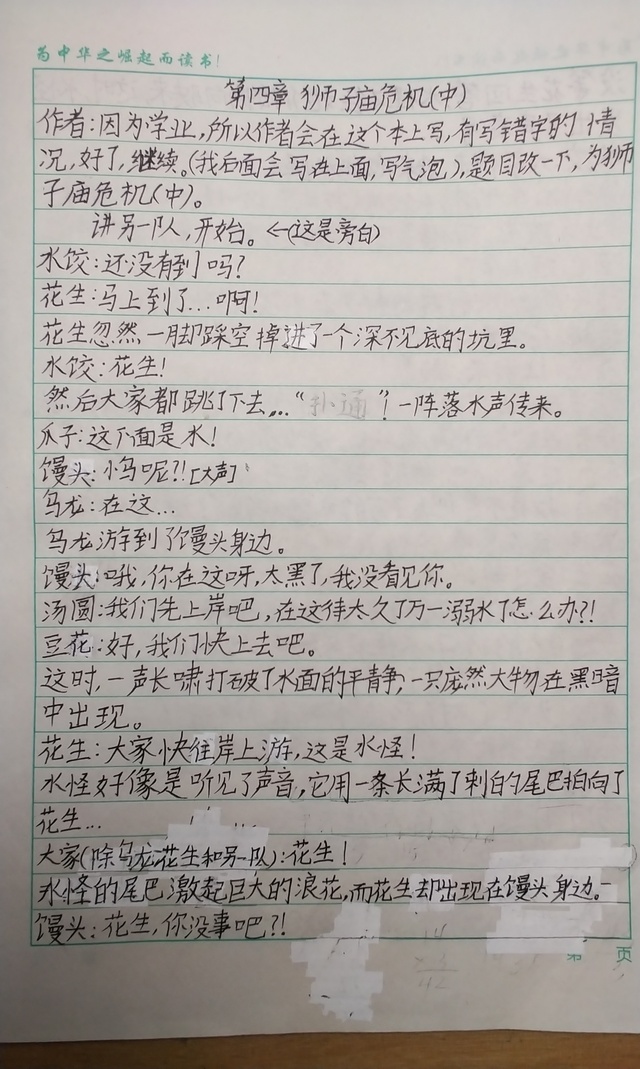 为中华之崛起而读书!
第四章 狮子庙危机(中)
作者:因为学业,所以作者会在这个本上写,有写错字的 情
况,好了,继续。(我后面会写在上面,写气泡),题目改一下,为狮
子庙危机(中)。
讲另一队,开始。←(这是旁白)
水饺:还没有到吗?
花生:马上到了...啊!
花生忽然一脚踩空掉进了一个深不见底的坑里。
水饺:花生!
然后大家都跳了下去,..“扑通”!一阵落水声传来。
瓜子:这下面是水!
馒头:小乌呢?![大声]
乌龙:在这...
乌龙游到了馒头身边。
馒头:哦,你在这呀,太黑了,我没看见你。
汤圆:我们先上岸吧,在这待太久了万一溺水了怎么办?!
豆花:好,我们快上去吧。
这时,一声长啸打破了水面的平静,一只庞然大物在黑暗
中出现。
花生:大家快往岸上游,这是水怪!
水怪好像是听见了声音,它用一条长满了刺的尾巴拍向了
花生...
大家(除乌龙花生和另一队):花生!
水怪的尾巴激起巨大的浪花,而花生却出现在馒头身边。
馒头:花生,你没事吧?!
第 页